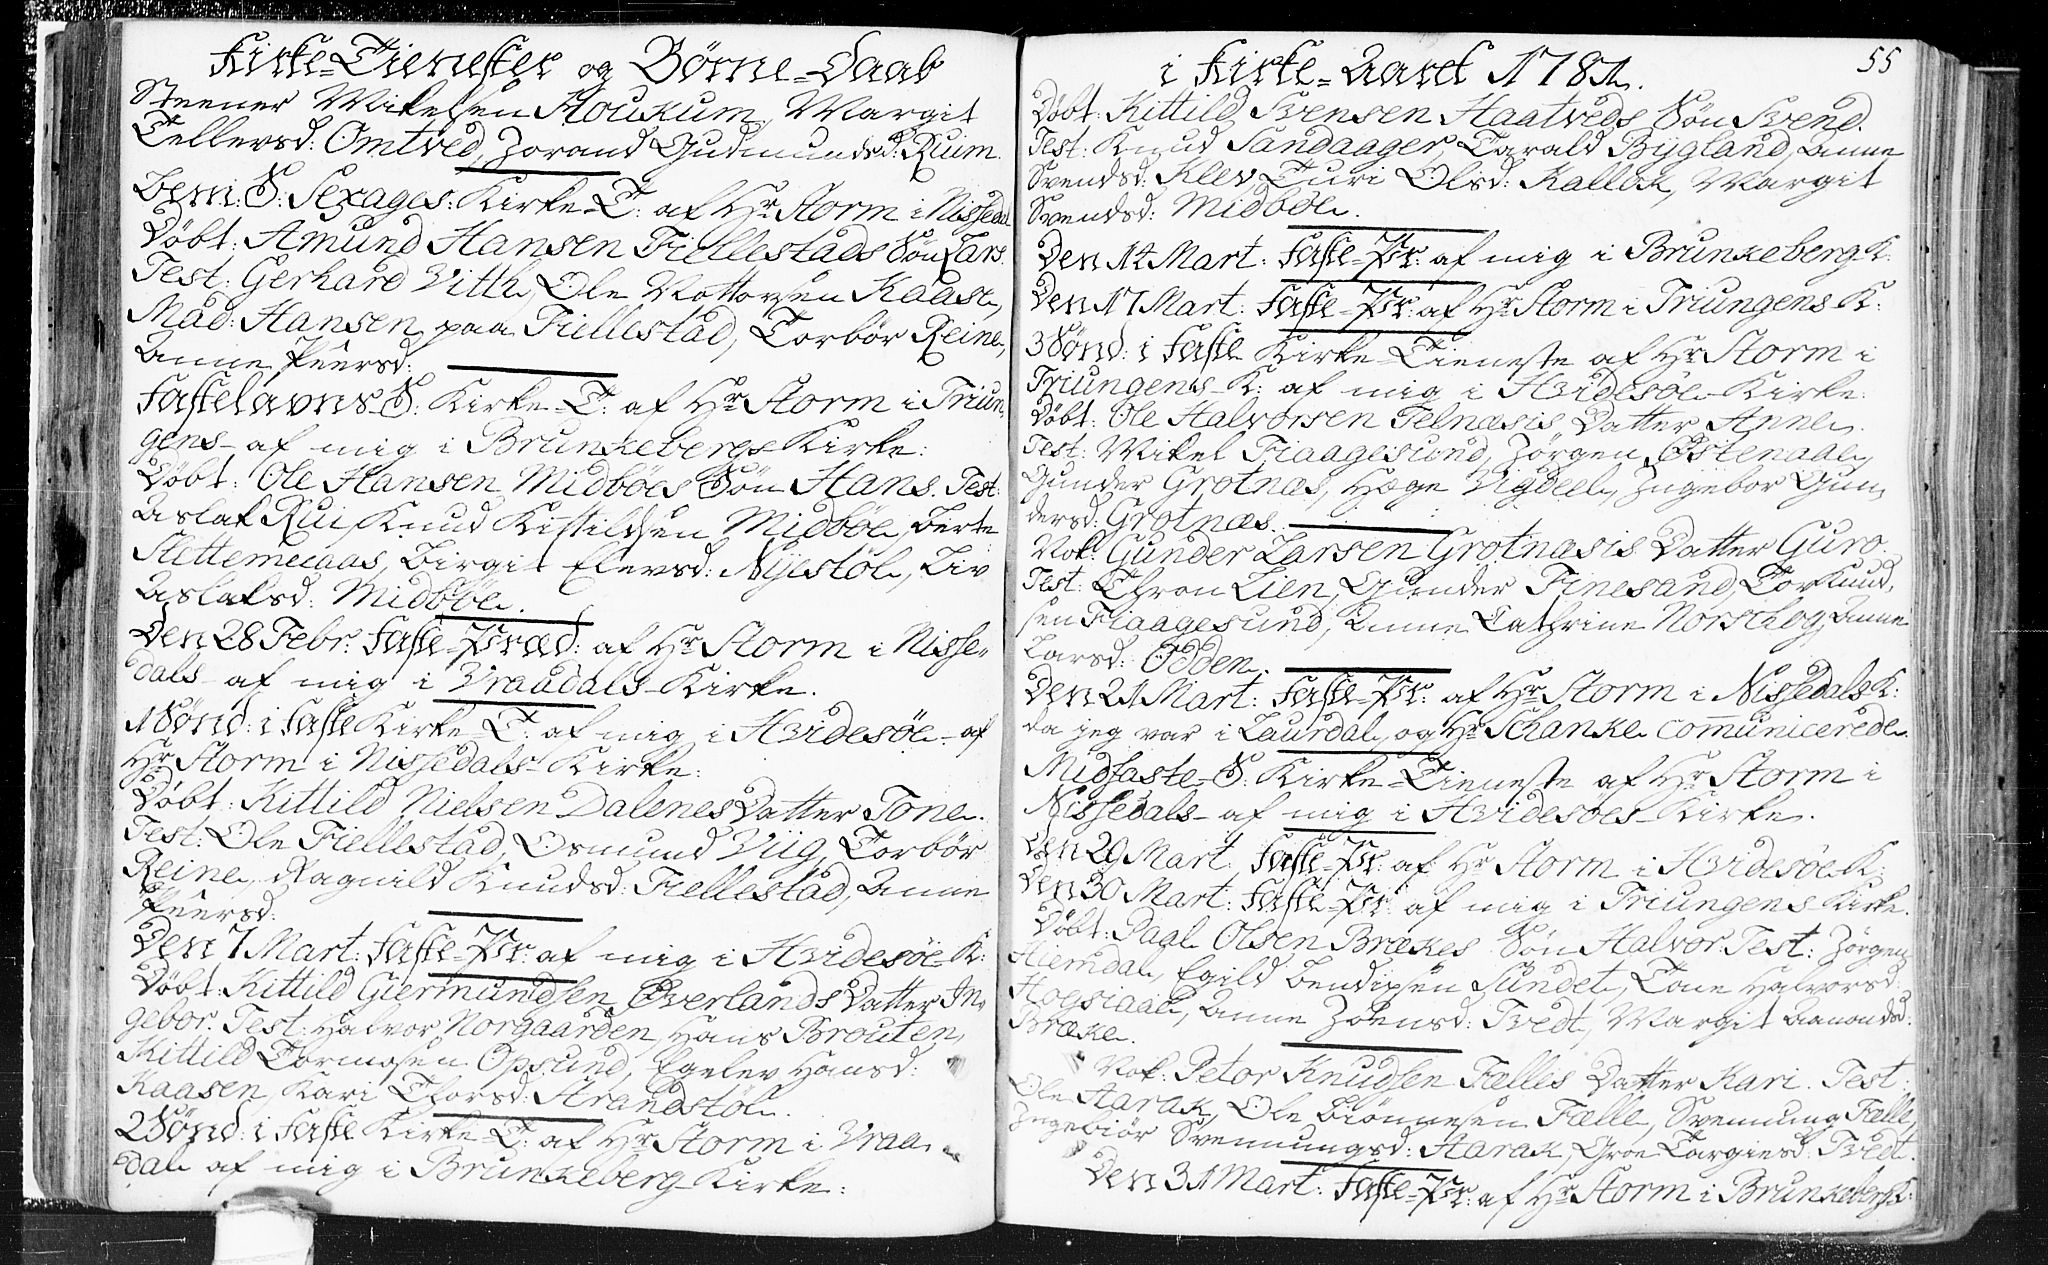 Kirke-Tienester og Börne-Daab
Steener Mikelsen Houkum, Margit
Tellevsd: Omtved, Jorand Gudmundsd: Ruim.
Dom: S: Sexages: Kirke-T: af Hr Storm i Nissedal
Döbt: Amund Hansen Fiellestads Sön Lars.
Test: Gerhard Vitth, Ole Nottorsen Kaase,
Mad: Hansen paa Fiellestad, Torbör Reine,
Anne Peersd:
Fastelavns-S: Kirke-T: af Hr Storm i Triun,
gens- af mig i Brunkebergs Kirke:
Döbt: Ole Hansen Midböes Sön Hans. Test:
Aslak Rui, Knud Kittildsen Midböe, Berte
Slettemeaas, Birgit Elevsd: Nyestöl, Liv
Aslaksd: Midböe.
Den 28 Febr: Faste-Præd: af Hr Storm i Nisse-
dals- af mig i Vraadals-Kirke.
1 Sönd: i Faste Kirke-T: af mig i Hvidesöe- af
Hr Storm i Nissedals-Kirke:
Döbt: Kittild Nielsen Dalenes Datter Tone.
Test: Ole Fiellestad, Osmund Viig, Torbör
Reine, Ragnild Knudsd: Fiellestad, Anne
Peersd:
Den 7 Mart: Faste-Pr: af mig i Hvidesöe-K:
Döbt: Kittild Giermundsen Överlands Datter In-
gebor. Test: Halvor Norgaarden, Hans Brouten,
Kittild Tormosen Opsund, Egelev Hansd:
Kaasen, Kari Thorsd: Strandstöl.
2 Sönd: i Faste Kirke-T: af Hr Storm i Vraa-
dal- af mig i Brunkeberg-Kirke:
i Kirke-Aaret 1781.
55
Döbt: Kittild Svensen Haatveds Sön Svend.
Test: Knud Sandaager, Tarald Bygland, Anne
Svendsd: Klev, Turi Olsd: Kallok, Margit
Svendsd: Midböe.
Den 14 Mart: Faste-Pr: af mig i Brunkeberg K:
Den 17 Mart: Faste-Pr: af Hr Storm i Triungens K:
3 Sönd: i Faste Kirke-Tieneste af Hr Storm i
Triungens-K: af mig i Hvidesöe-Kirke:
Döbt: Ole Halvorsen Telnæsis Datter Anne.
Test: Mikel Fraagesund, Jörgen Östenaae,
Gunder Grotnæs, Hæge Vigdeel, Ingebor Gun,
dersd: Grotnæs.
Nok: Gunder Larsen Grotnæsis Datter Guro.
Test: Thron Lien, Gunder Finesand, Tor Knud,
sen Fraagesund, Anne Cathrine Norschog, Anne
Larsd: Odden.
Den 21 Mart: Faste-Pr: af Hr Storm i Nissedals K:
da jeg var i Laurdal, og Hr Schanke comunicerede.
Midfaste-S: Kirke-Tieneste af Hr Storm i
Nissedals- af mig i Hvidesöes-Kirke.
Den 29 Mart. Faste-Pr: af Hr Storm i Hvidesöe K:
Den 30 Mart: Faste-Pr: af mig i Triungens-Kirke.
Döbt: Paal Olsen Brækes Sön Halvor. Test: Jörgen
Hiemdal, Egild Bendixsen Sundet, Tone Halvorsd:
Hogsiaae, Anne Joensd: Tvedt, Margit Aanondsd:
Bræke.
Nok: Petor Knudsen Fælles Datter Kari. Test:
Ole Aarak, Ole Biönnesen Fælle, Svennung Fælle,
Ingebiör Svennungsd: Aarak, Groe Targiesd: Tvedt.
Den 31 Mart: Faste-Pr: af Hr Storm i Brunkebergs K: